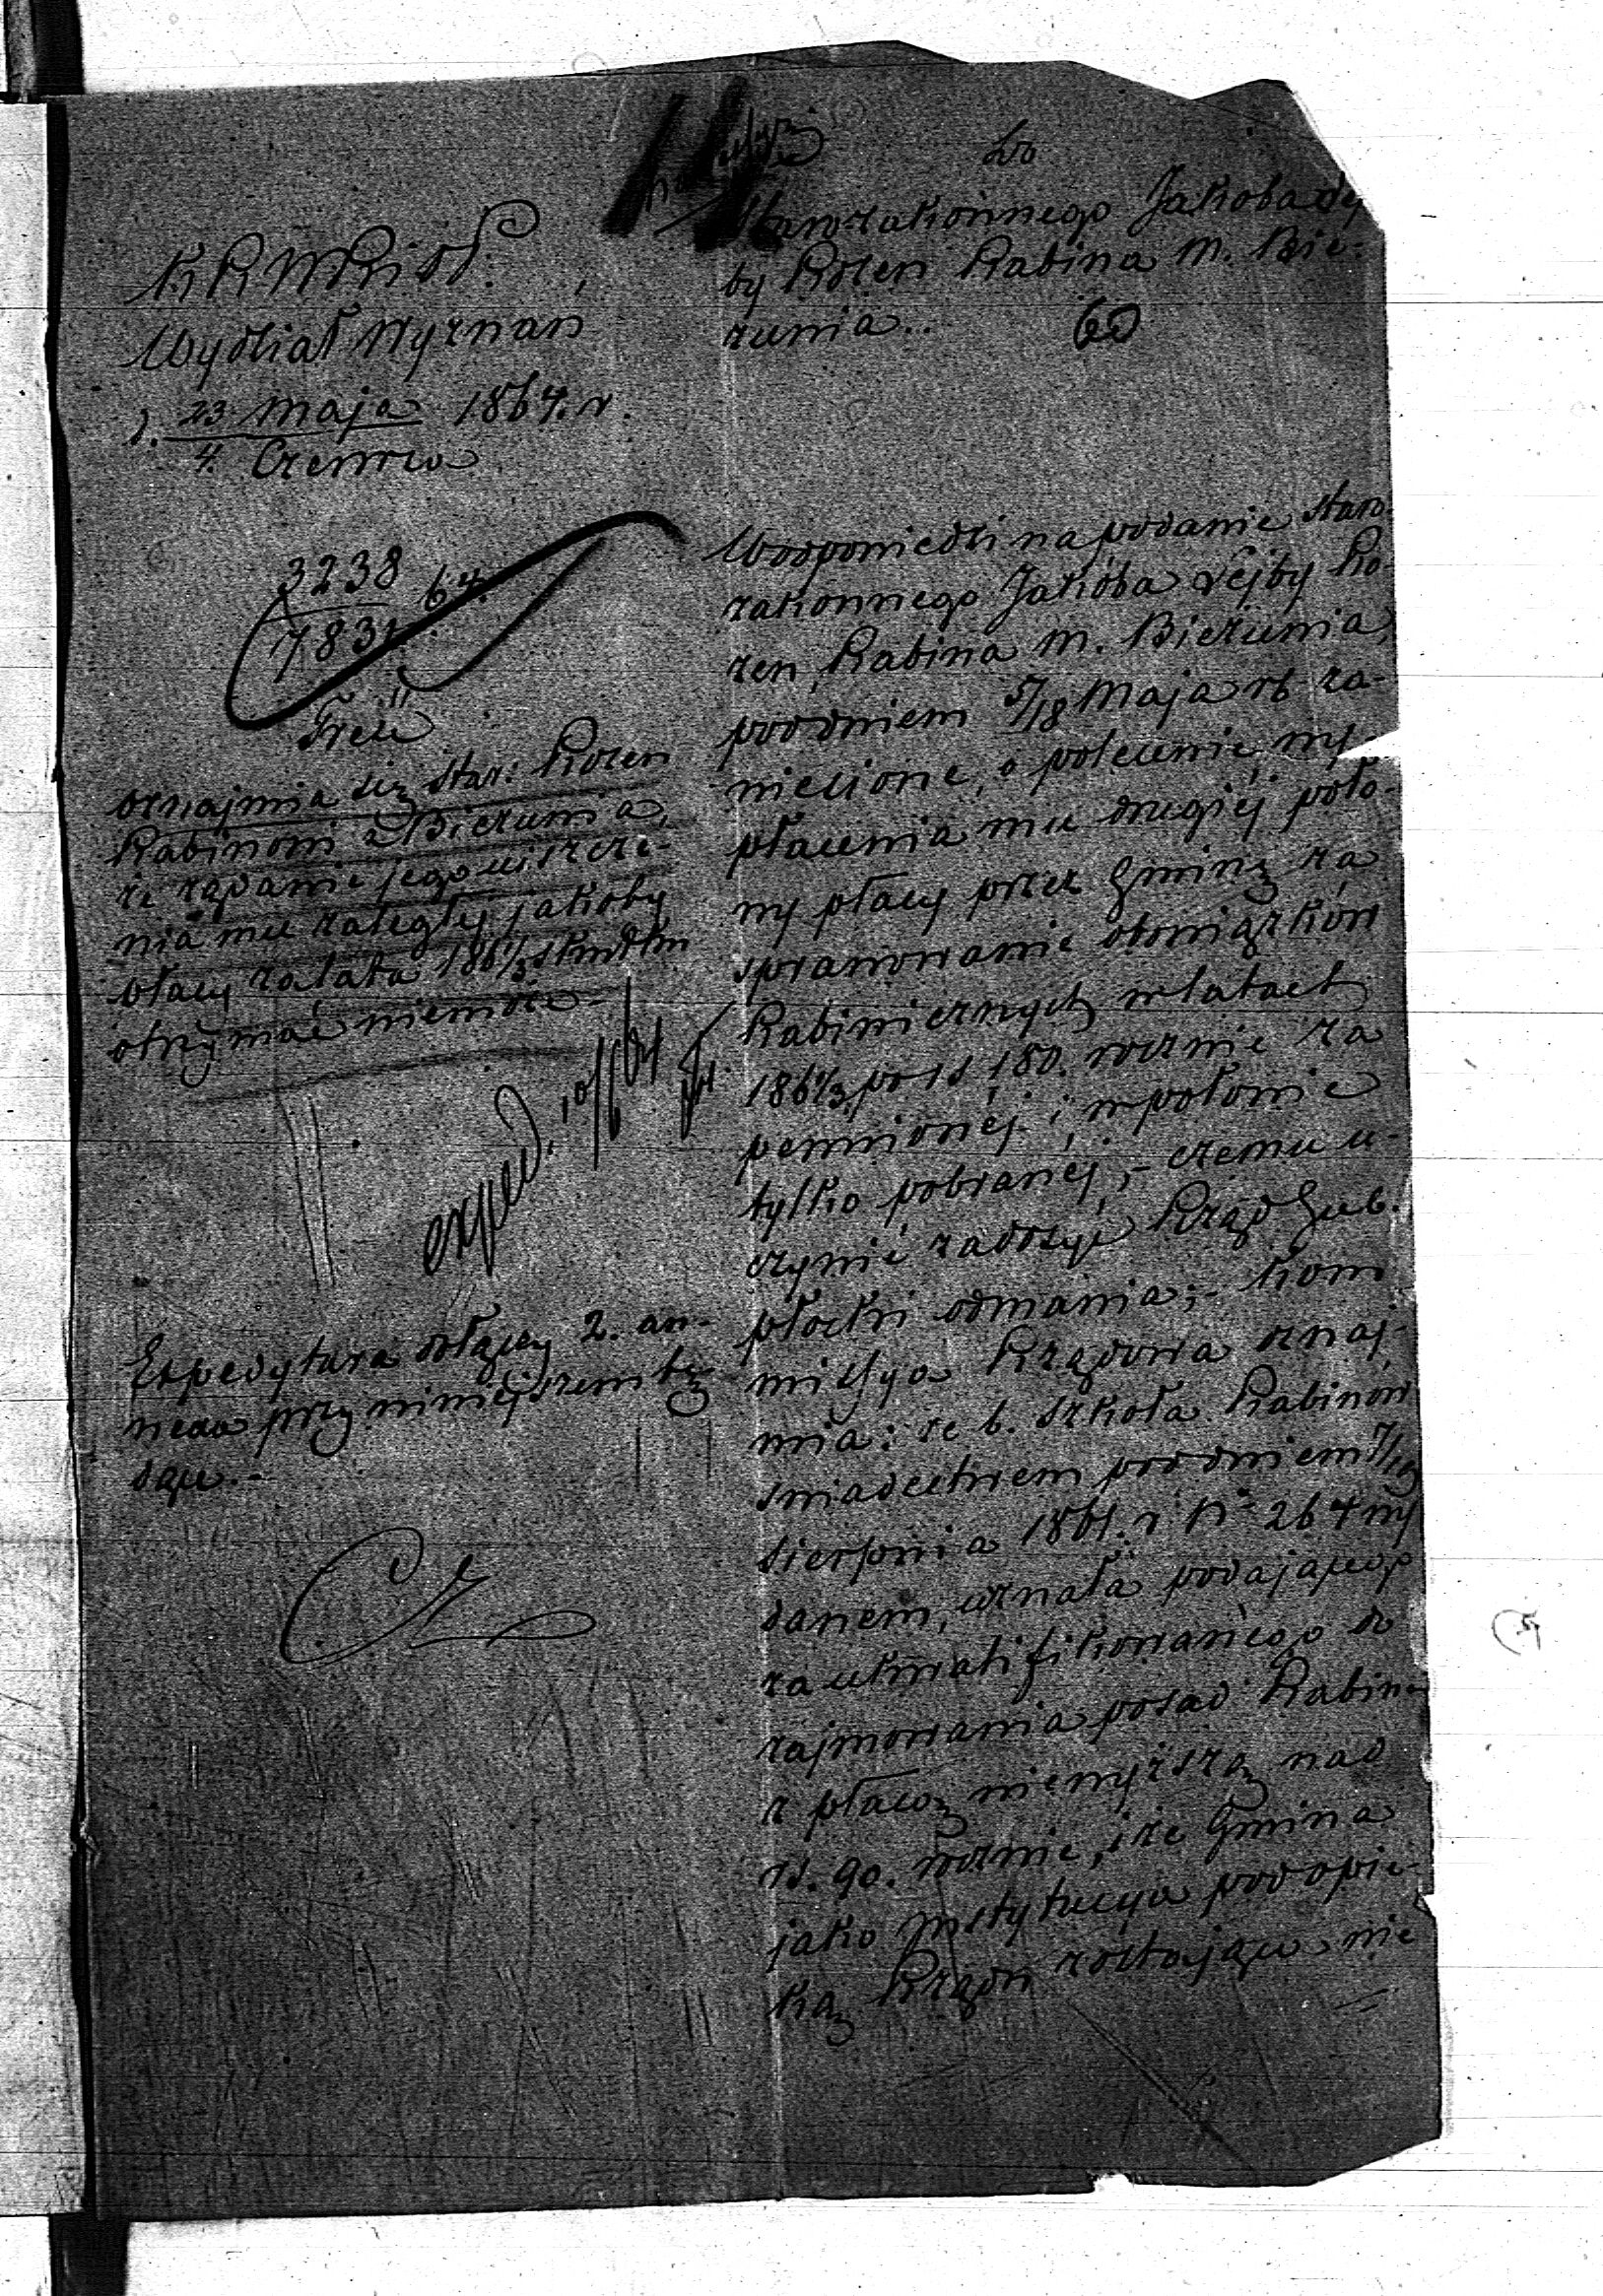 K R W R i O P.
Wydział Wyznań
d. 23 Maja 1864. r.
4. Czerwca
3238
7831 64.
Treść
oznajmia się Star: Rozen
Rabinowi z Bieżunia,
że żądanie jego uiszcze-
nia mu zaległej jakoby
płacy za lata 1861/3 skutku
otrzymać nie może.-
exped. 10/6 64
Expedytura dołączy 2. an-
nexa przy niniejszem bę-
dące.-
Do
Starozakonnego Jakoba Lej
by Rozen Rabina M. Bie-
żunia..
60
W odpowiedzi na podanie staro-
zakonnego Jakóba Lejby Ro-
zen Rabina M. Bieżunia,
pod dniem 5/18 Maja rb za-
niesione, o polecenie wy-
płacenia mu drugiéj poło-
wy płacy przez Gminę za
sprawowanie obowiązków
Rabinicznych w latach
1861/3 po rs 180. rocznie za
pewnionéj i w połowie
tylko pobranéj, - czemu u-
czynić zadosyć Rząd Gub.
płocki odmawia; - Kom
missya Rządowa oznaj-
mia: że b. Szkoła Rabinów
świadectwem pod dniem 7/19
Sierpnia 1861. r. No 264 wy
danem, uznała podającego
za ukwalifikowanego do
zajmowania posad Rabina
z płacą niewyższą nad
rs. 90. rocznie, i że Gmina
jako Instytucya pod opie-
ką Rządu zostająca nie